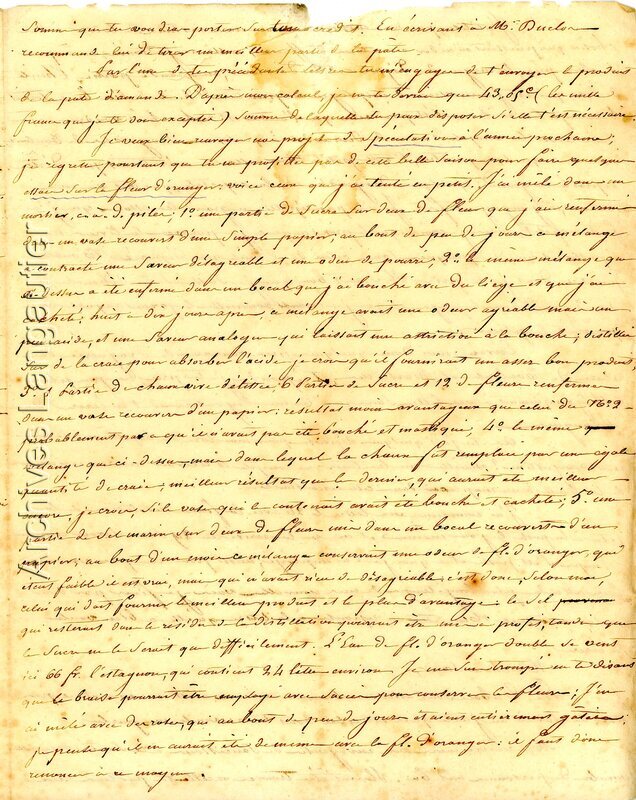 somme que tu voudras porter sur ton crédit. En écrivant à Mr. Duclos
recommande lui de tirer un meilleur parti de la pate.
Par l'une de tes précédentes lettres tu m'engages de t'envoyer le produit
de la pate d'amande. D'après mon calcul, je ne te dois que 43,05c (les mille
francs que je te dois exceptés) somme de laquelle tu peux disposer si elle t'est nécessaire.
Je veux bien renvoyer nos projets de spéculation à l'année prochaine,
je regrette pourtant que tu ne profites pas de cette belle saison pour faire quelques
essais sur la fleur d'oranger; voici ceux que j'ai tenté en petit. J'ai mêlé dans un
mortier, c.a.d. pilée; 1o une partie de sucre sur deux de fleur que j'ai renfermé
dans un vase recouvert d'une simple papier; au bout de peu de jours ce mélange
a contracté une saveur désagréable et une odeur de pourri; 2o le meme mélange que
ci-dessus a été enfermé dans un bocal que j'ai bouché avec du liège et que j'ai
cacheté; huit à dix jours après, ce mélange avait une odeur agréable mais un
peu acide, et une saveur analogue qui laissait une astriction à la bouche; distillée
sur de la craie pour absorber l'acide je crois qu'il fournirait un assez bon produit,
3o Partie de chaux vive délitée 6 Partie de sucre et 12 de fleurs renfermé
dans un vase recouvert d'un papier: résultat moins avantageux que celui du No 2
probablement parce qu'il n'avait pas été bouché et mastiqué, 4o le même
mélange que ci-dessus, mais dans lequel la chaux fut remplacée par une égale
quantité de craie; meilleur résultat que le dernier, qui aurait été meilleur
encore, je crois si le vase qui le contenait avait été bouché et cacheté; 5o une
Partie de sel marin sur deux de fleurs mis dans un bocal recouvert d'un
papier; au bout d'un mois ce mélange conservait une odeur de fl. d'oranger, qui
était faible il est vrai, mais qui n'avait rien de désagréable c'est donc, selon moi,
celui qui doit fournir le meilleur produit et le plus d'avantage: le sel
qui resterait dans le résidu de la distillation pourrait être mis à profit, tandis que
le sucre ne le serait que difficilement. L'Eau de fl. d'oranger double se vent
ici 66 fr. l'estagnon, qui contient 24 litres environ. Je me suis trompé en te disant
que la braise pourrait être employé avec succès pour conserver la fleurs; J'en
ai mêlé avec des roses, qui au bout de peu de jours étaient entièrement gâtées:
je pense qu'il en aurait été de même avec la fl. d'oranger: il faut donc
renoncer à ce moyen.
©Archives Langautier